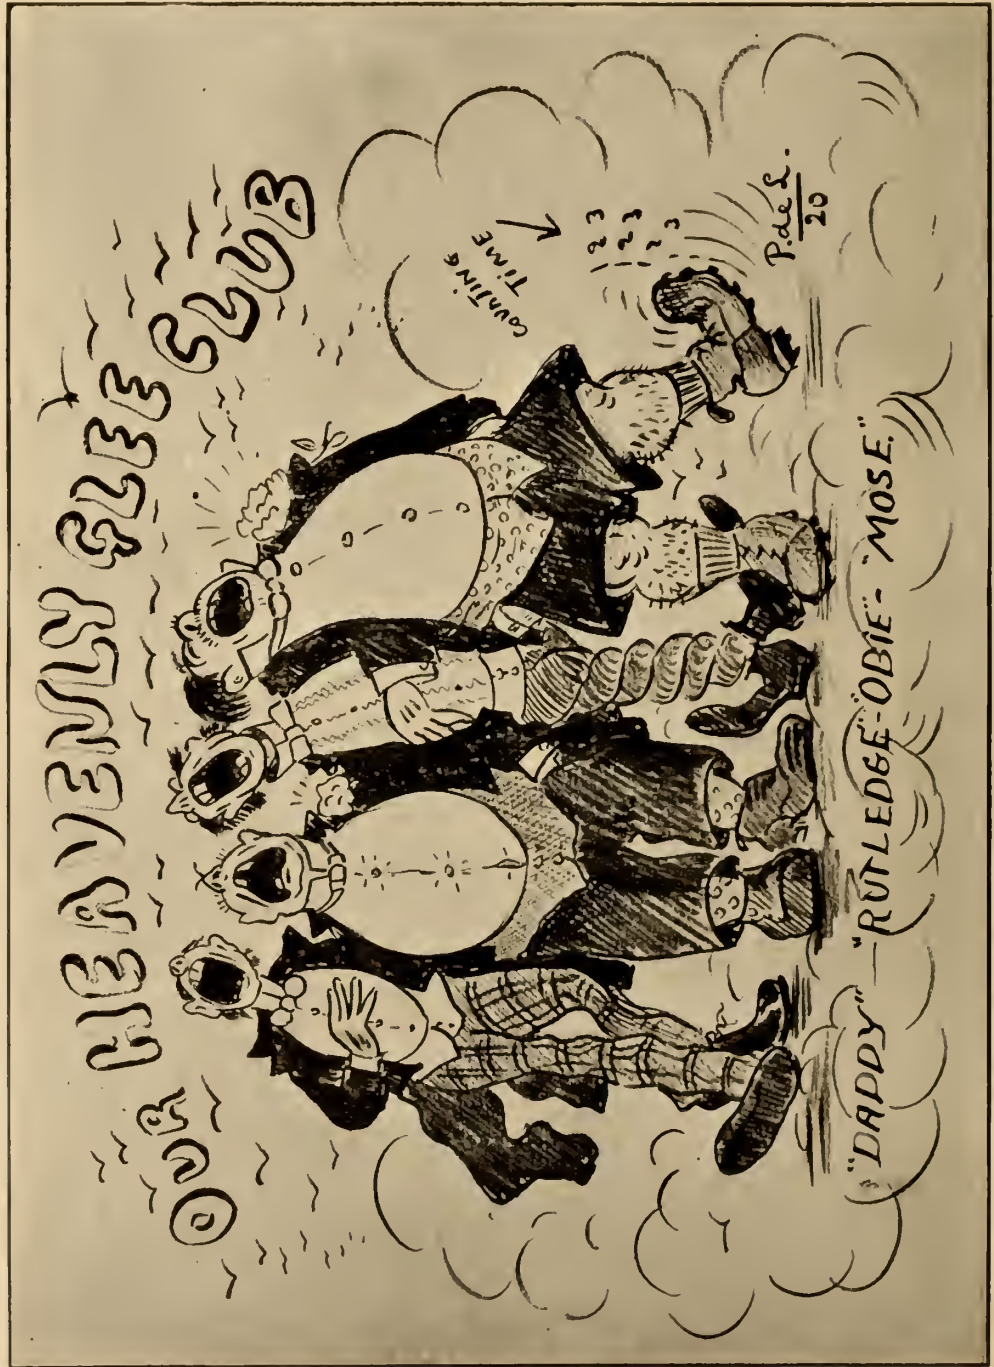 OUR HEAVENLY GLEE CLUB
COUNTING
TIME
2 3
2 3
2 3
P. de L.
20
"DADDY" — "RUTLEDGE"-"OBIE"- "MOSE."